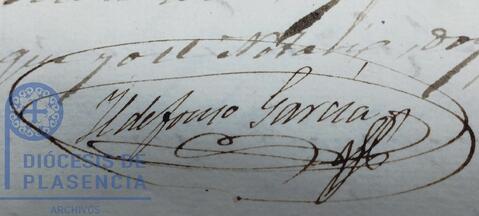 que yo el Notario, doy
Ildefonso García
DIÓCESIS DE
PLASENCIA
ARCHIVOS